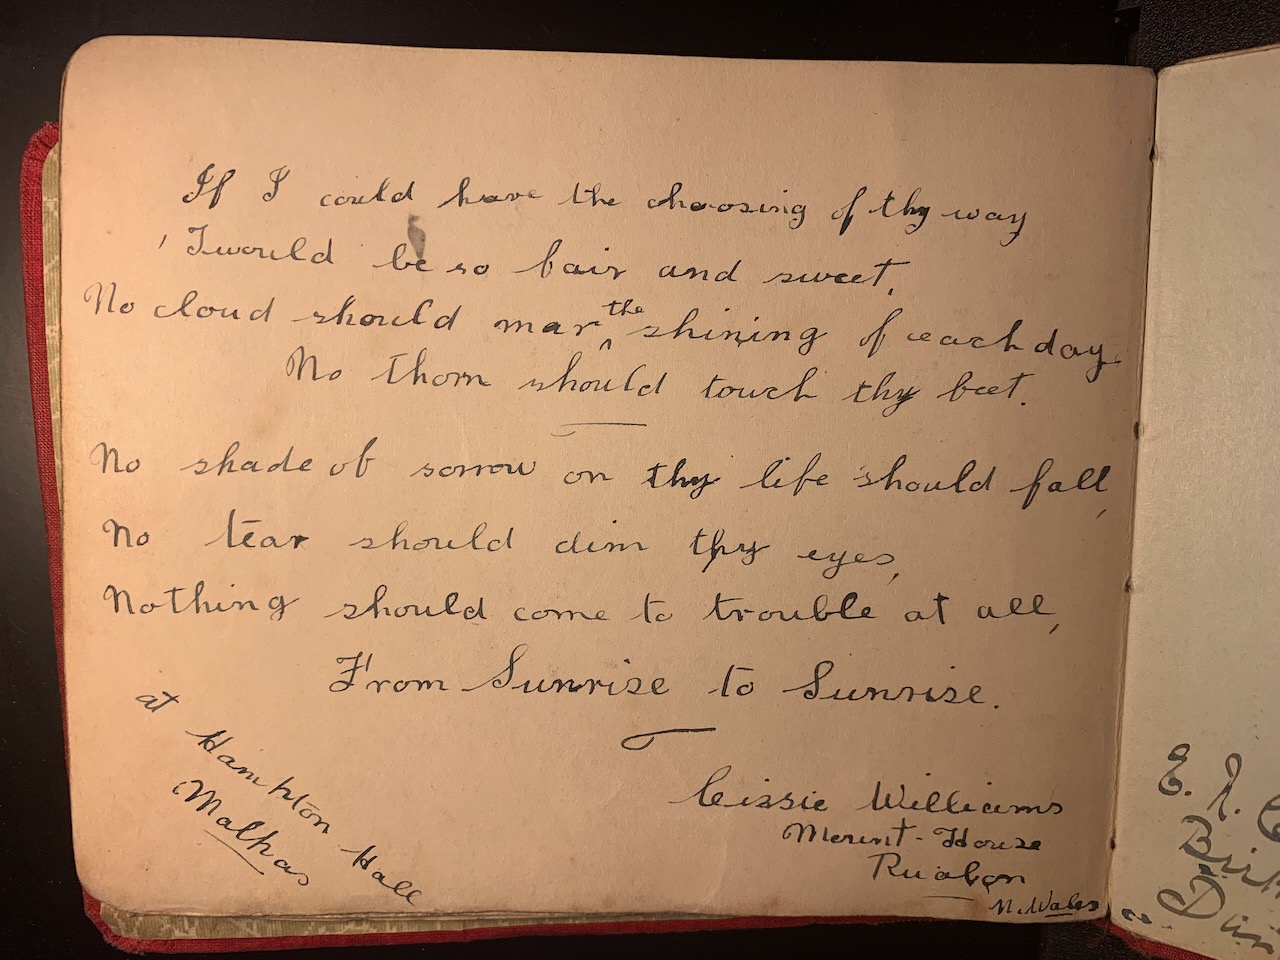 If I could have the choosing of thy way
'Twould be so fair and sweet,
No cloud should mar the shining of each day
No thorn should touch thy feet.
No shade of sorrow on thy life should fall,
No tear should dim thy eyes,
Nothing should come to trouble at all,
From Sunrise to Sunrise.
at
Hampton Hall
Malpas
Cissie Williams
Mount-House
Ruabon
N. Wales
E. J.